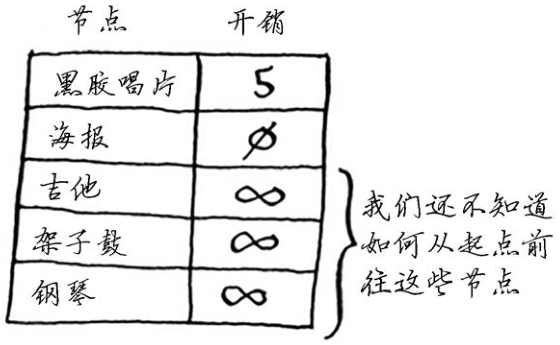 节点 开销
黑胶唱片 5
海报 0
吉他 ∞
架子鼓 ∞
钢琴 ∞
我们还不知道
如何从起点前
往这些节点